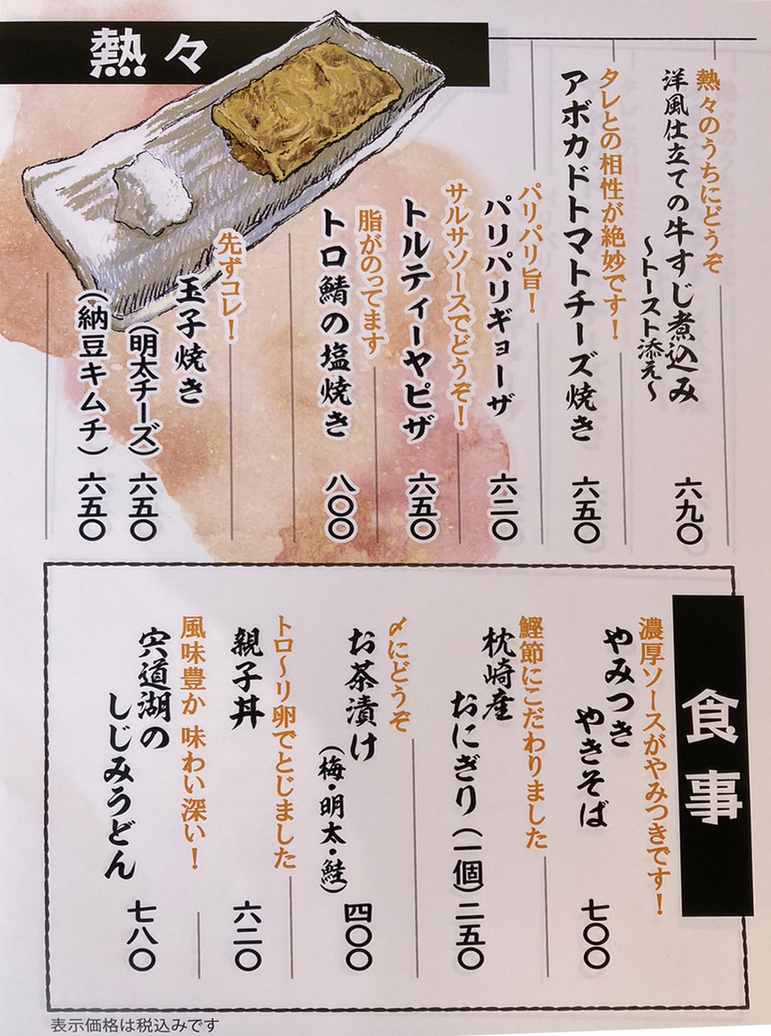 熱々
熱々のうちにどうぞ
洋風仕立ての牛すじ煮込み
～トースト添え～
六九〇
タレとの相性が絶妙です！
アボカドトマトチーズ焼き
六五〇
パリパリ旨！
パリパリギョーザ
六二〇
サルサソースでどうぞ！
トルティーヤピザ
六五〇
脂がのってます
トロ鯖の塩焼き
八〇〇
先ずコレ！
玉子焼き
（明太チーズ）六五〇
（納豆キムチ）六五〇
食事
濃厚ソースがやみつきです！
やみつき
やきそば
七〇〇
鰹節にこだわりました
枕崎産
おにぎり（一個）二五〇
〆にどうぞ
お茶漬け
（梅・明太・鮭）
四〇〇
トロ～リ卵でとじました
親子丼
六二〇
風味豊か 味わい深い！
宍道湖の
しじみうどん
七八〇
表示価格は税込みです